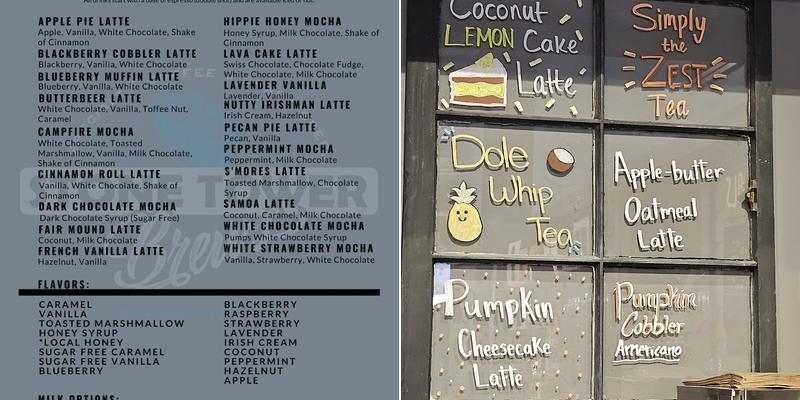 All drinks start with a base of espresso (double shot) and are available iced or hot.
APPLE PIE LATTE
Apple, Vanilla, White Chocolate, Shake
of Cinnamon
BLACKBERRY COBBLER LATTE
Blackberry, Vanilla, White Chocolate
BLUEBERRY MUFFIN LATTE
Blueberry, Vanilla, White Chocolate
BUTTERBEER LATTE
White Chocolate, Vanilla, Toffee Nut,
Caramel
CAMPFIRE MOCHA
White Chocolate, Toasted
Marshmallow, Vanilla, Milk Chocolate,
Shake of Cinnamon
CINNAMON ROLL LATTE
Vanilla, White Chocolate, Shake of
Cinnamon
DARK CHOCOLATE MOCHA
Dark Chocolate Syrup (Sugar Free)
FAIR MOUND LATTE
Coconut, Milk Chocolate
FRENCH VANILLA LATTE
Hazelnut, Vanilla
HIPPIE HONEY MOCHA
Honey Syrup, Milk Chocolate, Shake of
Cinnamon
LAVA CAKE LATTE
Swiss Chocolate, Chocolate Fudge,
White Chocolate, Milk Chocolate
LAVENDER VANILLA
Lavender, Vanilla
NUTTY IRISHMAN LATTE
Irish Cream, Hazelnut
PECAN PIE LATTE
Pecan, Vanilla
PEPPERMINT MOCHA
Peppermint, Milk Chocolate
S'MORES LATTE
Toasted Marshmallow, Chocolate
Syrup
SAMOA LATTE
Coconut, Caramel, Milk Chocolate
WHITE CHOCOLATE MOCHA
Pumps White Chocolate Syrup
WHITE STRAWBERRY MOCHA
Vanilla, Strawberry, White Chocolate
FLAVORS:
CARAMEL
VANILLA
TOASTED MARSHMALLOW
HONEY SYRUP
*LOCAL HONEY
SUGAR FREE CARAMEL
SUGAR FREE VANILLA
BLUEBERRY
BLACKBERRY
RASPBERRY
STRAWBERRY
LAVENDER
IRISH CREAM
COCONUT
PEPPERMINT
HAZELNUT
APPLE
MILK OPTIONS:
Coconut
LEMON Cake
Latte
Simply
the
ZEST
Tea
Dole
Whip
Tea
Apple-butter
Oatmeal
Latte
Pumpkin
Cheesecake
Latte
Pumpkin
Cobbler
Americano